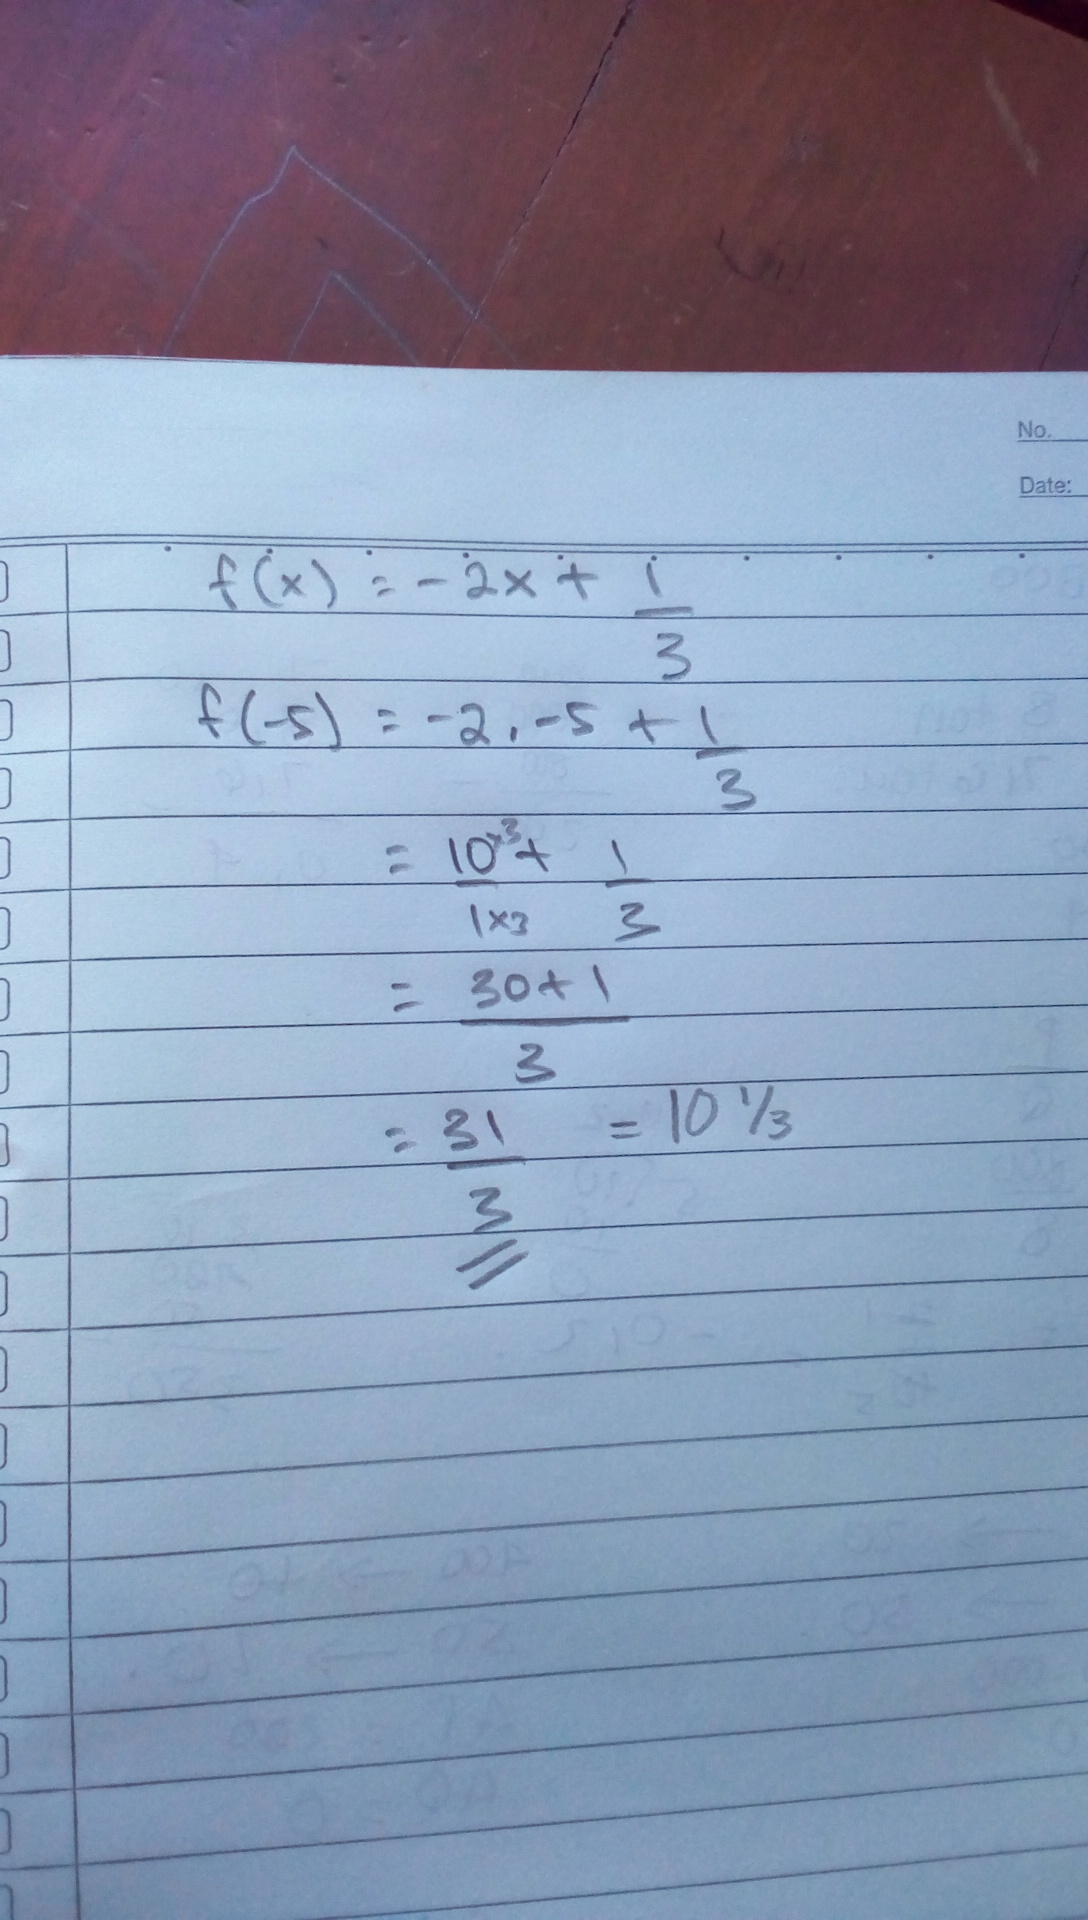 No.
Date:
f(x) = -2x + 1/3
f(-5) = -2.-5 + 1/3
= 10×3/1×3 + 1/3
= 30+1/3
= 31/3 = 10 1/3